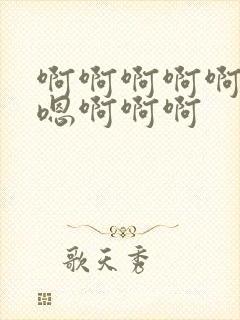 啊啊啊啊啊
嗯啊啊啊
歌天秀